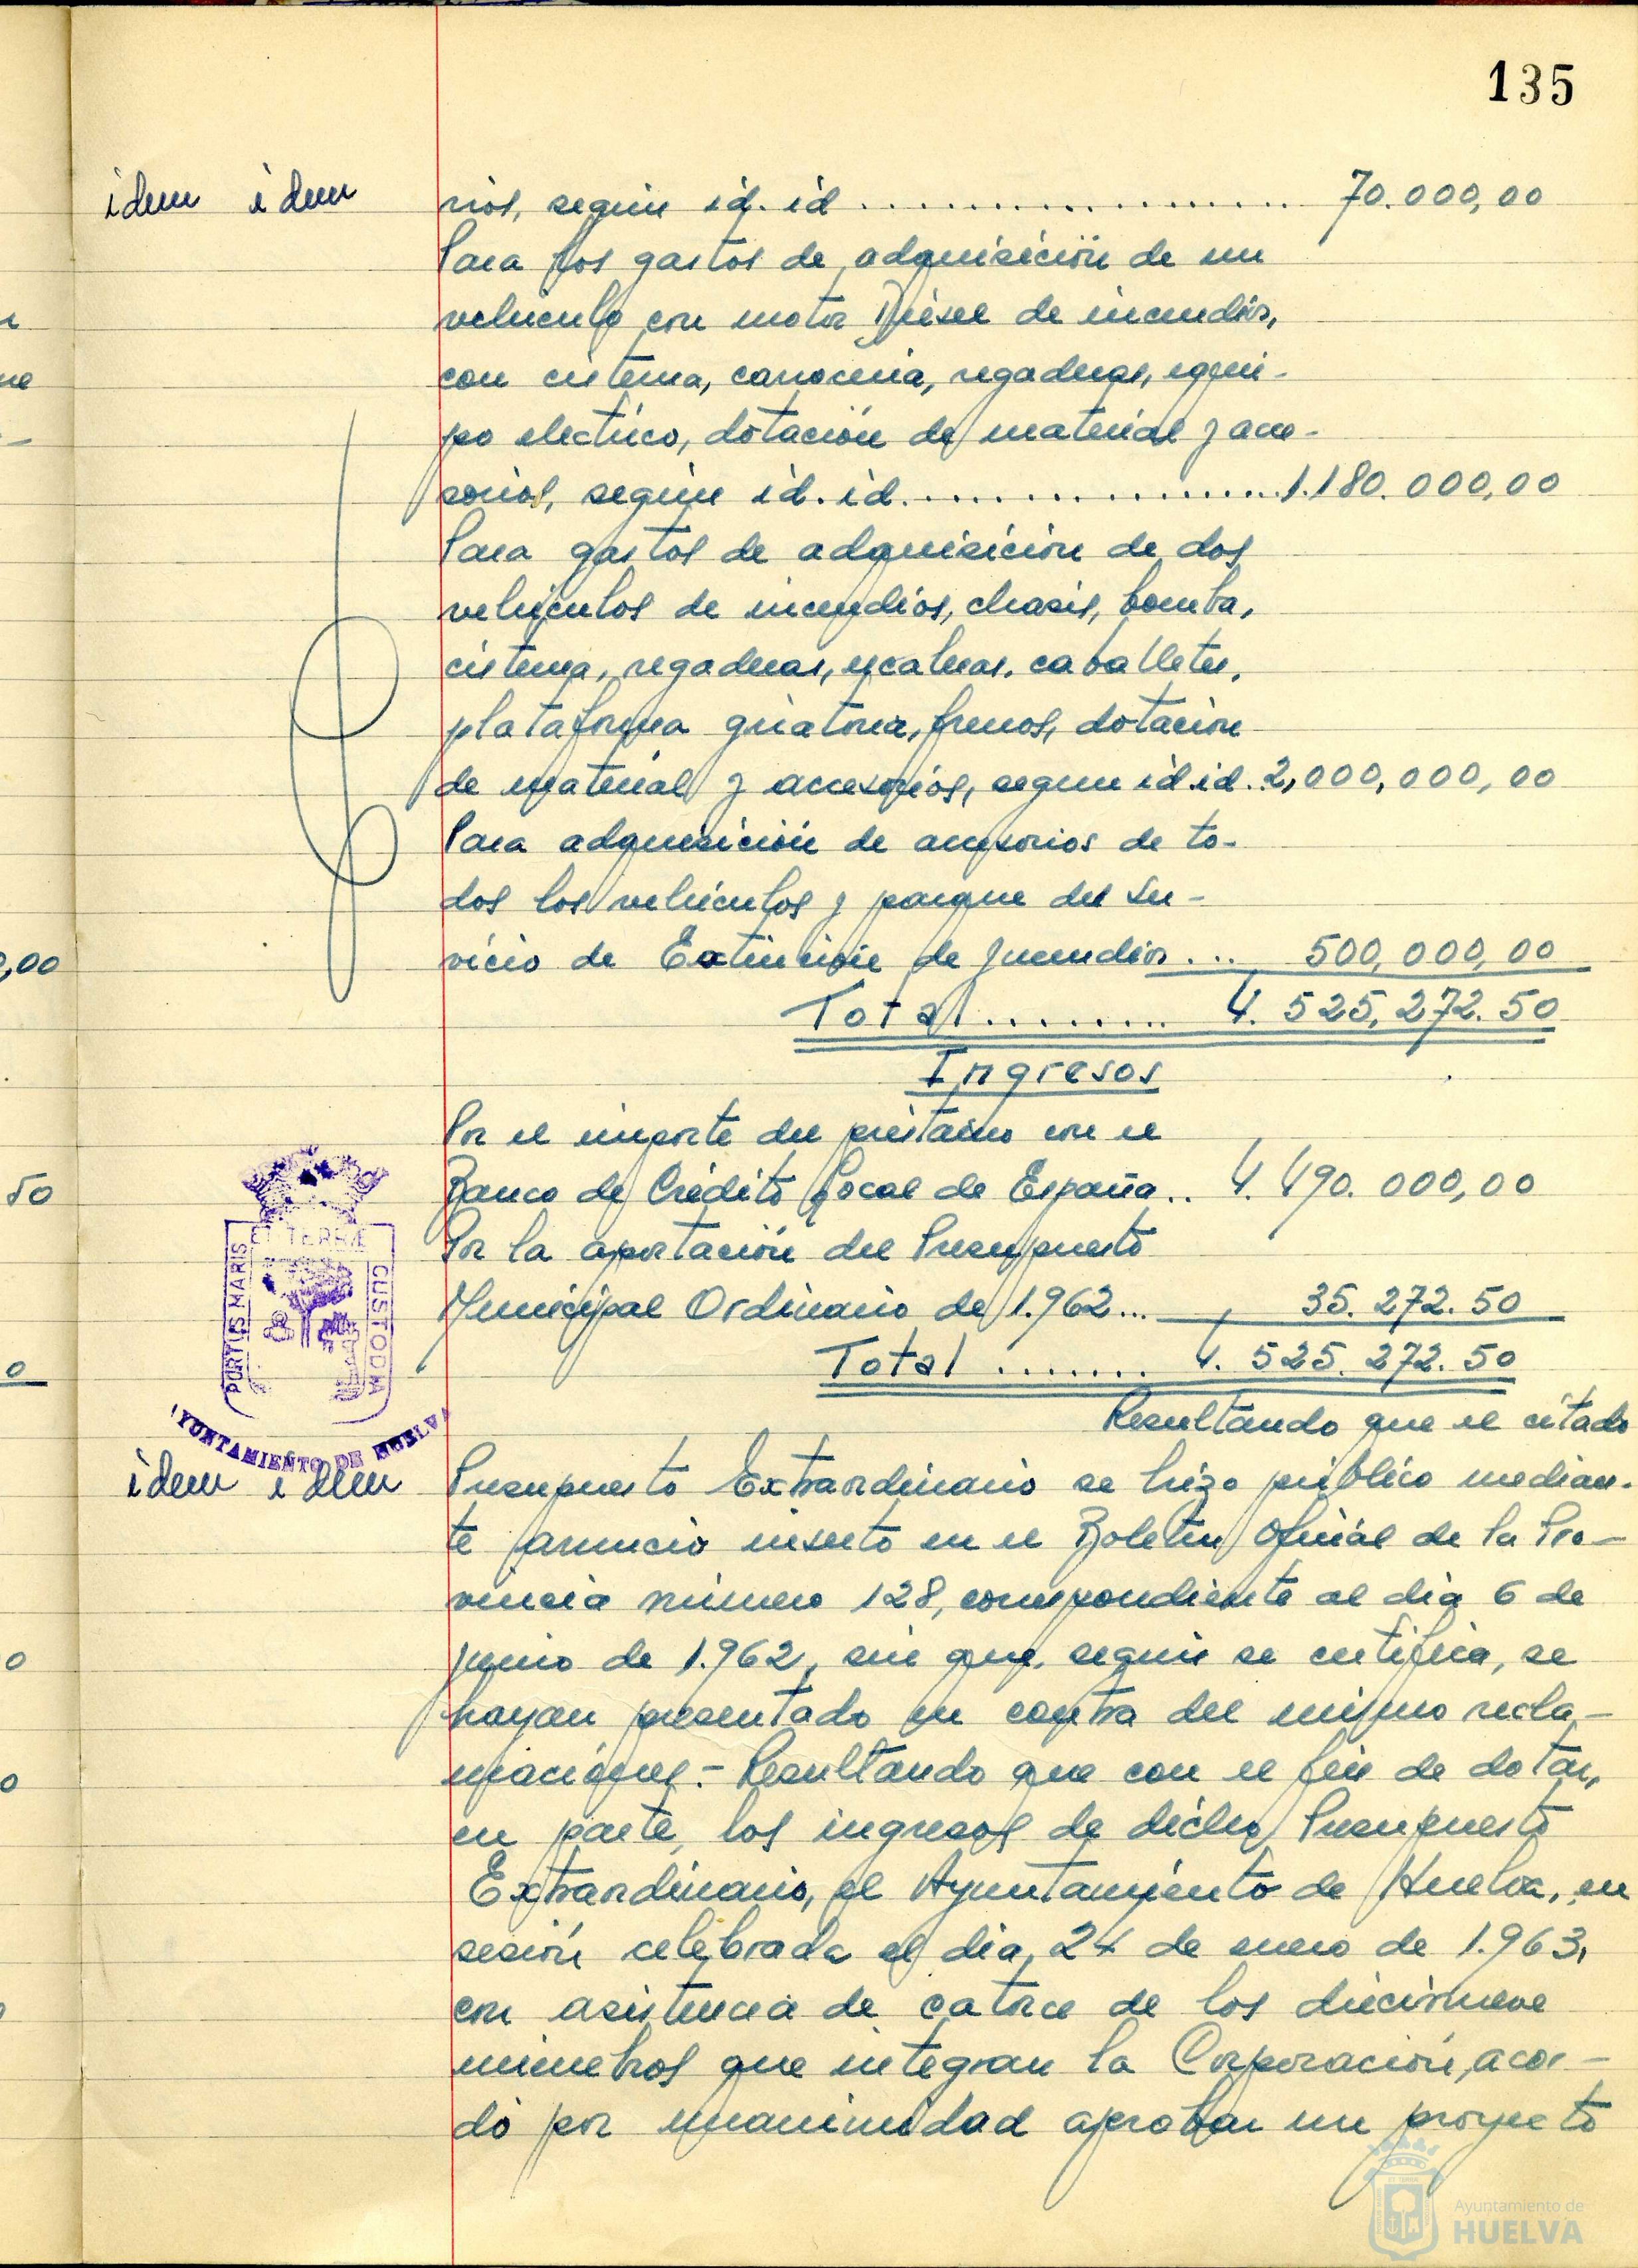 135
idem idem
rios, según id. id .................... 70.000,00
Para los gastos de adquisición de un
vehiculo con motor Diésel de incendios,
con cisterna, carrocería, regaderas, equi-
po electrico, dotación de material y acce-
sorios, según id. id. .................. 1.180.000,00
Para gastos de adquisición de dos
vehiculos de incendios, chasis, bomba,
cisterna, regaderas, escaleras, caballetes,
plataforma giratoria, frenos, dotación
de material y accesorios, según id. id. .. 2,000,000,00
Para adquisición de accesorios de to-
dos los vehiculos y parque del Ser-
vicio de Extinción de Incendios .... 500,000,00
Total......... 4.525,272.50
Ingresos
Por el importe del préstamo con el
Banco de Crédito Local de España .. 4.490.000,00
Por la aportación del Presupuesto
Municipal Ordinario de 1.962... 35.272.50
Total ........ 4.525.272.50
Resultando que el citado
ET TERRÆ
PORTUS MARIS
CUSTODIA
AYUNTAMIENTO DE HUELVA
idem idem
Presupuesto Extraordinario se hizo público median-
te anuncio inserto en el Boletin Oficial de la Pro-
vincia número 128, correspondiente al dia 6 de
junio de 1.962, sin que, según se certifica, se
hayan presentado en contra del mismo recla-
maciones.- Resultando que con el fin de dotar,
en parte, los ingresos de dicho Presupuesto
Extraordinario, el Ayuntamiento de Huelva, en
sesión celebrada el dia, 24 de enero de 1.963,
con asistencia de catorce de los diecinueve
miembros que integran la Corporación, acor-
dó por unanimidad aprobar un proyecto
Ayuntamiento de
HUELVA